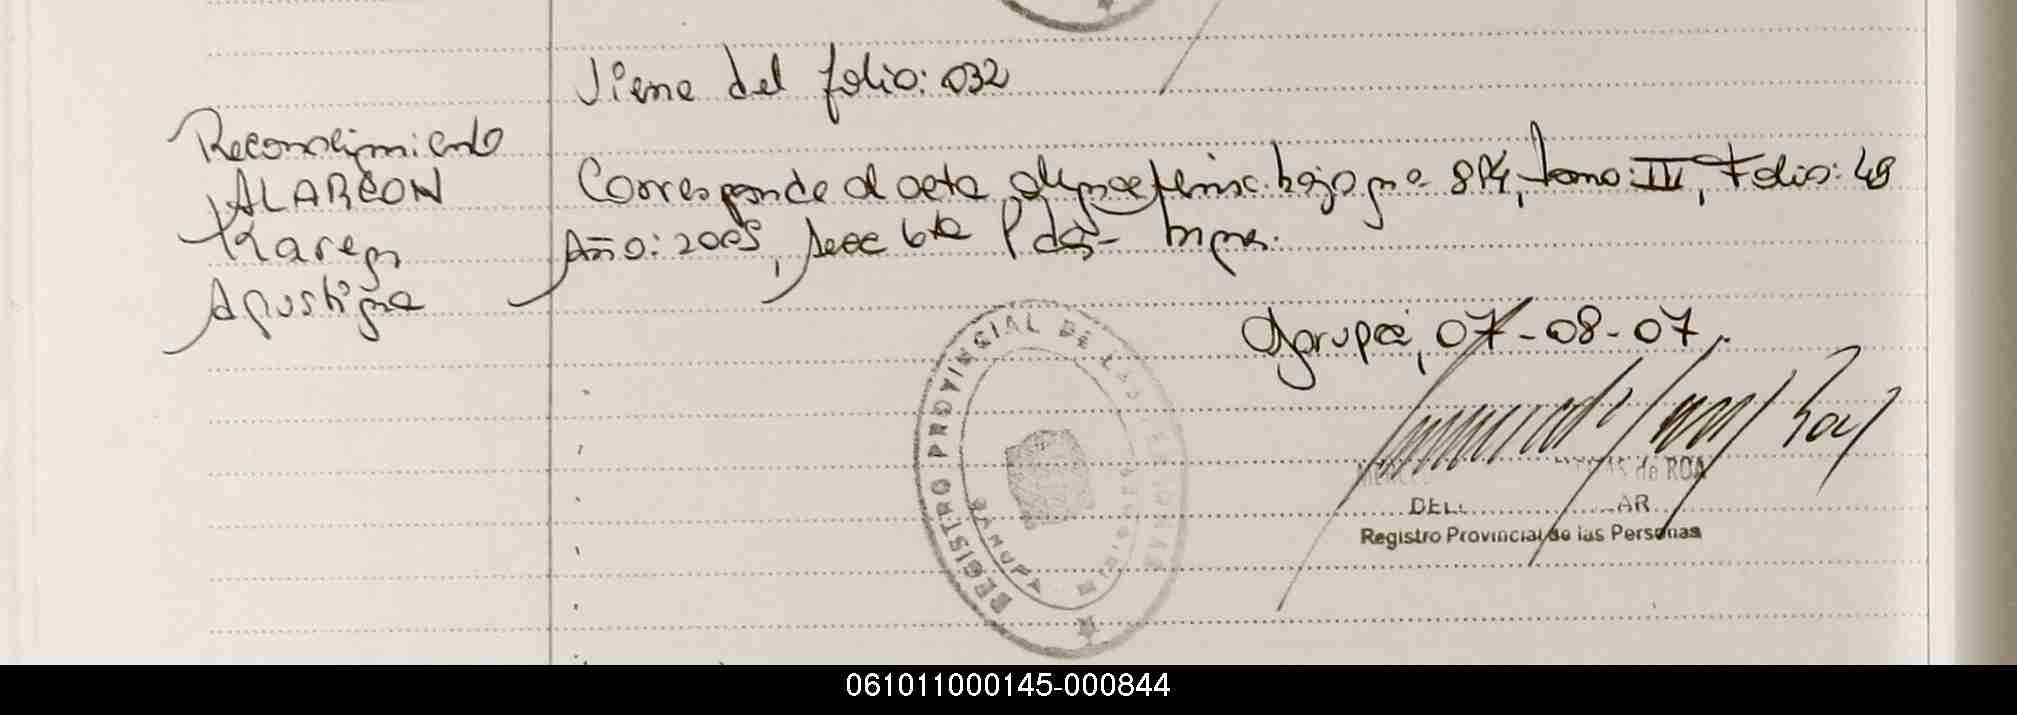 Viene del folio: 032
Reconocimiento
ALARCON
Karen
Agustina
Corresponde al acta bajo nº 814, tomo: III, Folio: 48
Año: 2005, secc 6ta Pdas-
07-08-07.
REGISTRO PROVINCIAL DE LAS PERSONAS
de ROA
DEL AR
Registro Provincial de las Personas
061011000145-000844